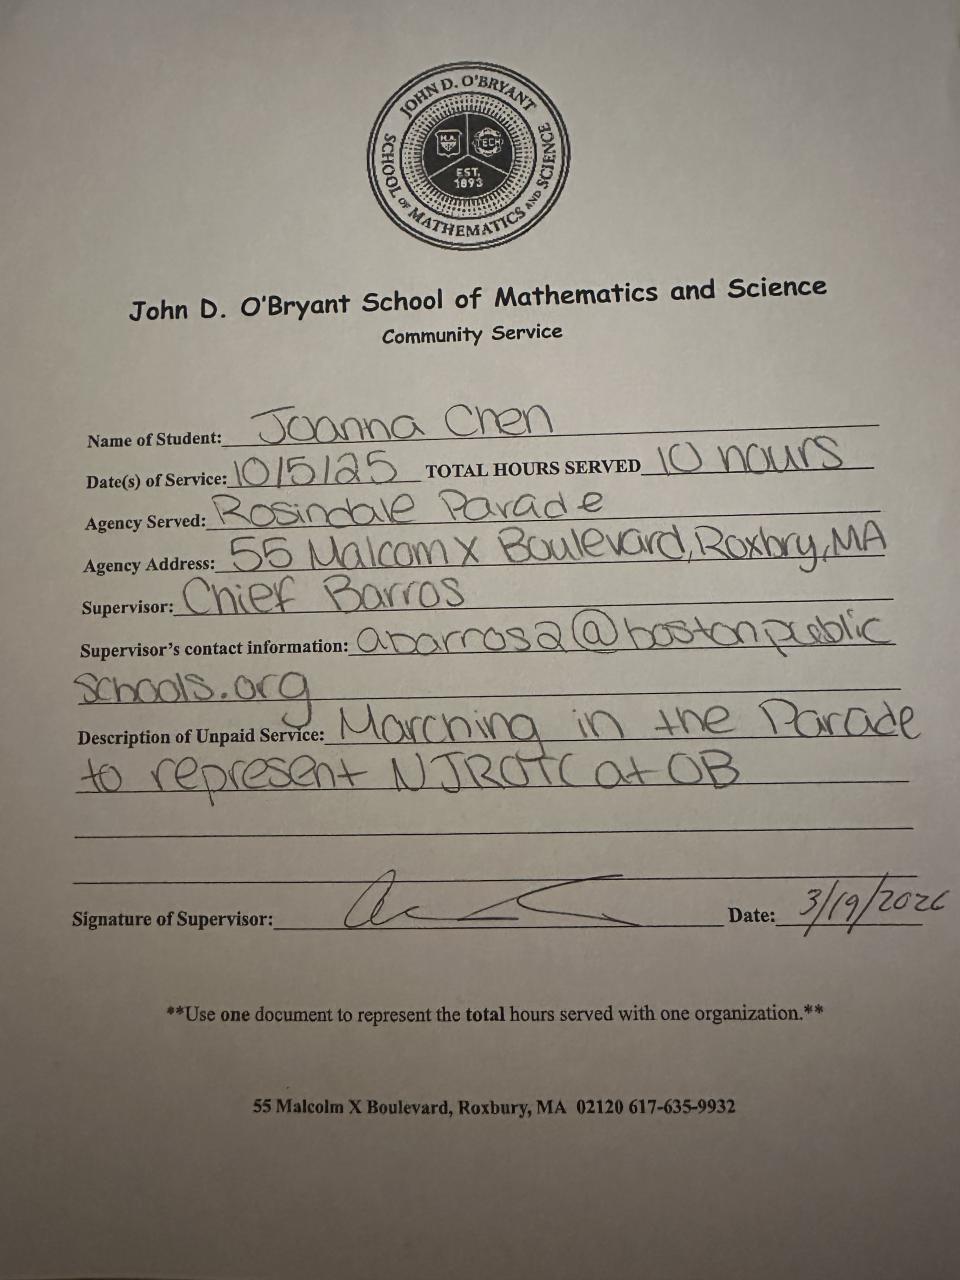 JOHN D. O'BRYANT
SCHOOL OF MATHEMATICS AND SCIENCE
H.A. TECH
EST.
1893
John D. O'Bryant School of Mathematics and Science
Community Service
Name of Student: Joanna Chen
Date(s) of Service: 10/5/25 TOTAL HOURS SERVED 10 hours
Agency Served: Rosindale Parade
Agency Address: 55 Malcom X Boulevard, Roxbry, MA
Supervisor: Chief Barros
Supervisor's contact information: abarros2@bostonpublic
schools.org
Description of Unpaid Service: Marching in the Parade
to represent NJROTC at OB
Signature of Supervisor: Date: 3/19/2026
**Use one document to represent the total hours served with one organization.**
55 Malcolm X Boulevard, Roxbury, MA 02120 617-635-9932